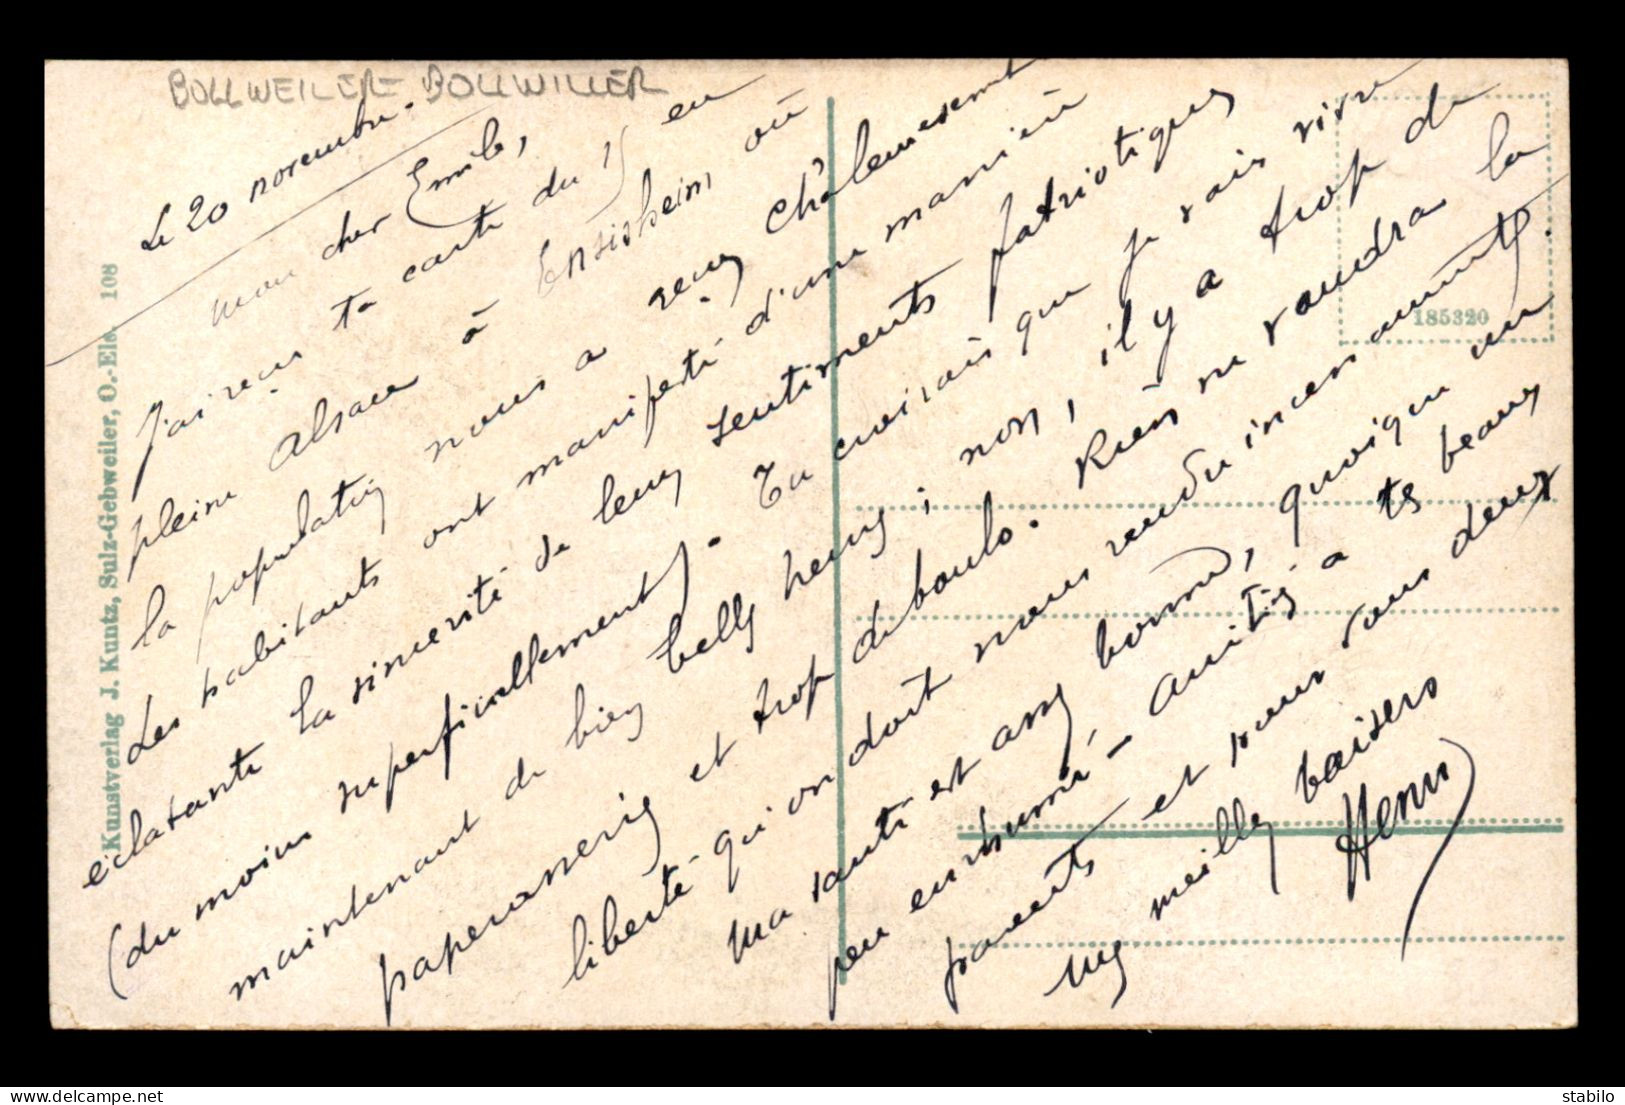 BOLLWEILER BOLLWILLER
Le 20 novembre.
Mon cher Emile,
J'ai reçu ta carte du 15 en
pleine Alsace à Ensisheim où
la population nous a reçus chaleureusement
Les habitants ont manifesté d'une manière
éclatante la sincérité de leurs sentiments patriotiques
(du moins superficiellement). Tu croirais que je vais vivre
maintenant de bien belles heures; non, il y a trop de
paperasserie et trop de boulo. Rien ne vaudra la
liberté qu'on doit nous rendre incessamment.
Ma santé est assez bonne, quoique un
peu enrhumé - amitiés à tes beaux
parents et pour vous deux
mes meilleurs baisers
Henri
Kunstverlag J. Kuntz, Sulz-Gebweiler, O.-Els. 108
185320
stabilo